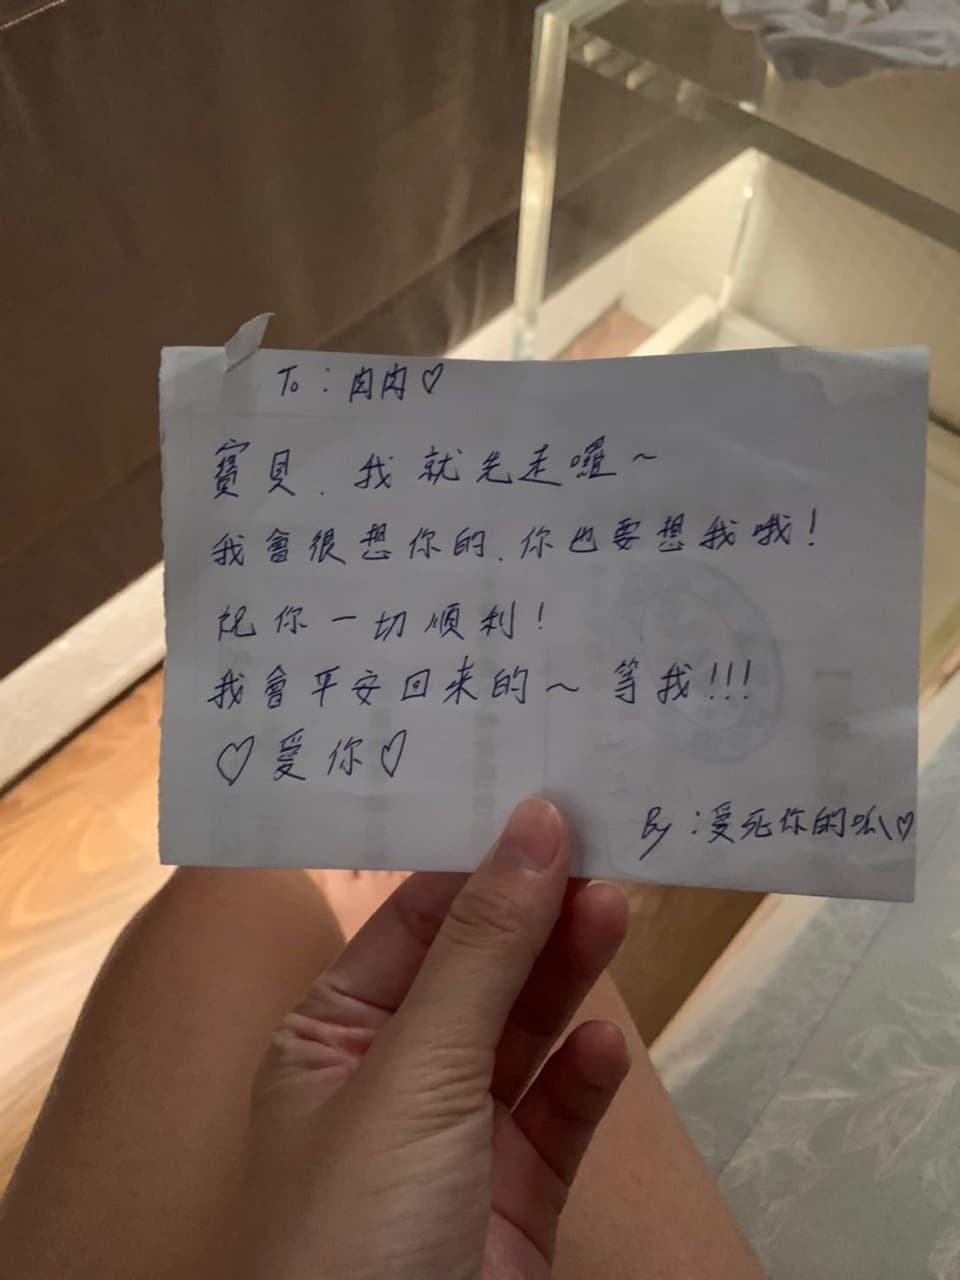 To：肉肉♡
寶貝. 我就先走囉~
我會很想你的. 你也要想我哦!
祝你一切順利!
我會平安回來的~ 等我!!!
♡愛你♡
By：愛死你的叭♡